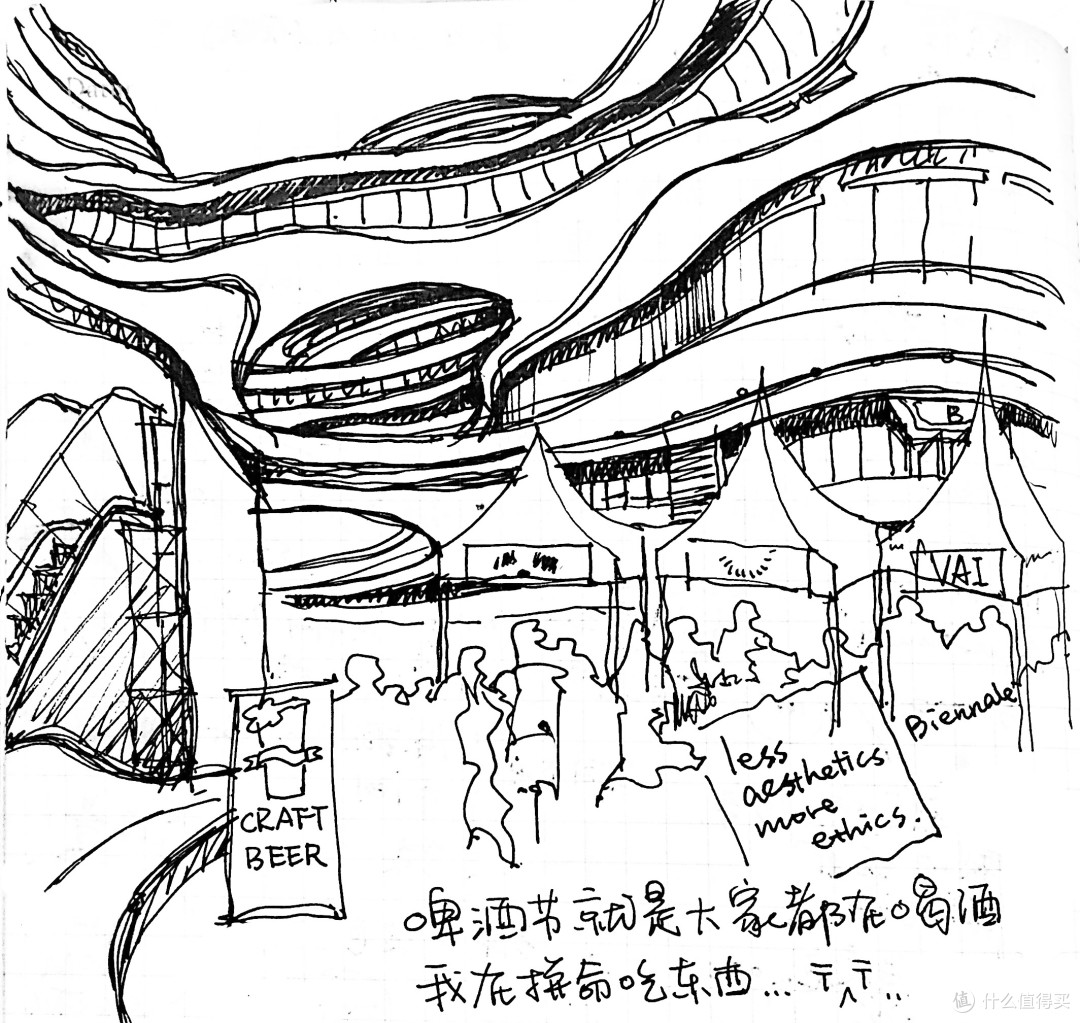 B
VAI
Biennale
less
aesthetics
more
ethics.
CRAFT
BEER
啤酒节就是大家都在喝酒
我在拼命吃东西... T^T..
值 什么值得买